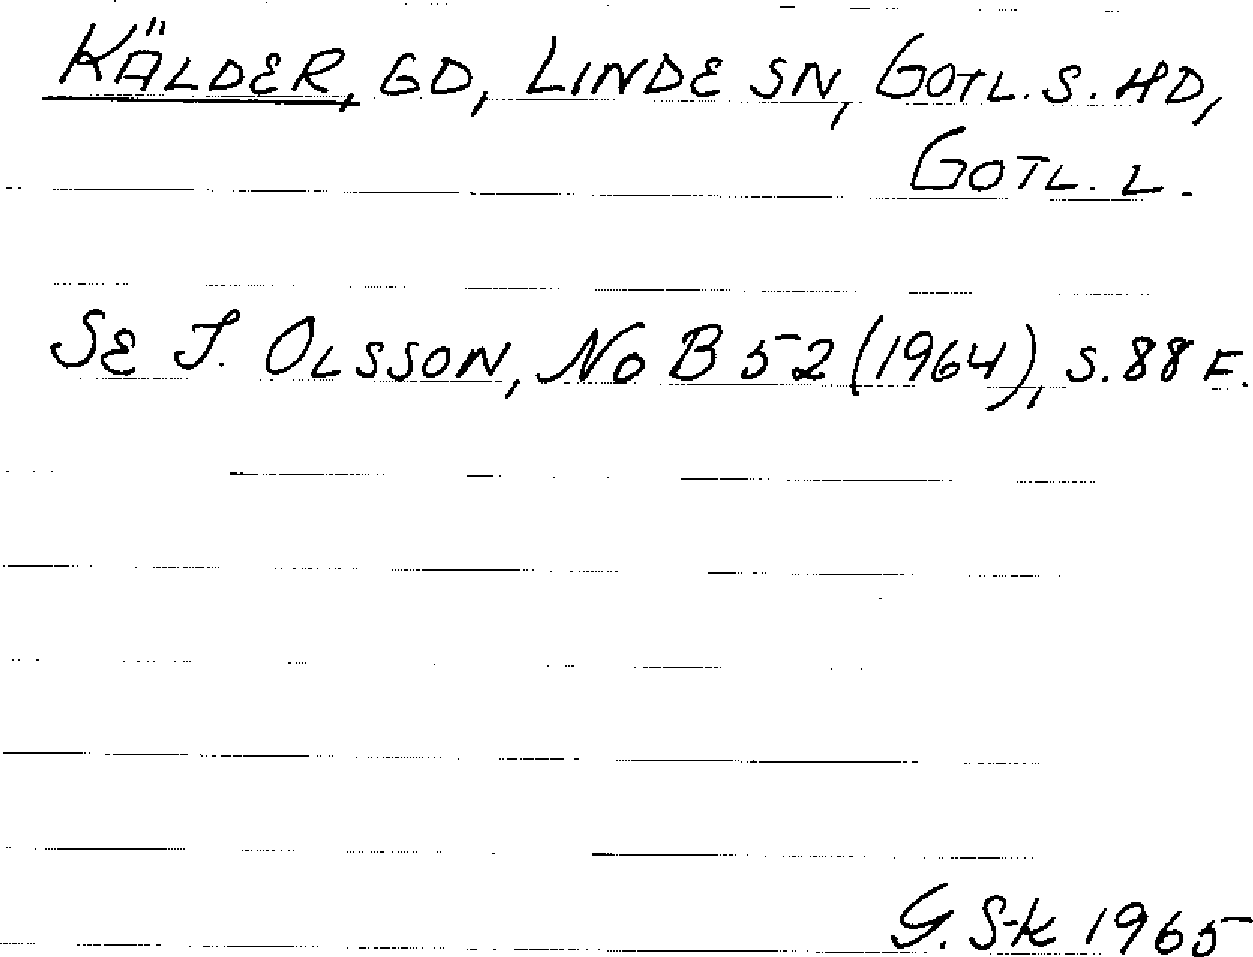 KÄLDER, GD, LINDE SN, GOTL. S. HD,
GOTL. L.
SE I. OLSSON, NoB 52 (1964), S. 88 F.
G. S-k 1965